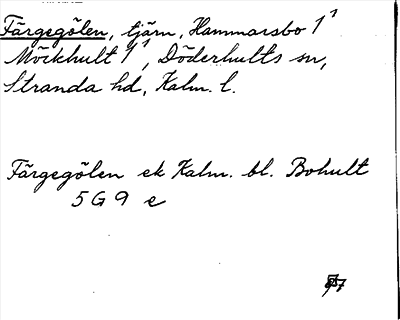 Färgegölen, tjärn, Hammarsbo 1¹
Möckhult 1¹, Döderhults sn,
Stranda hd, Kalm. l.
Färgegölen ek Kalm. bl. Bohult
5 G 9 e